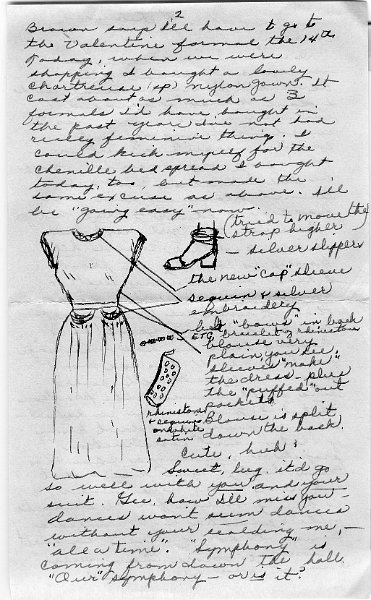 2
Bracon says I'll have to go to
the Valentine formal the 14th
Today, when we were
shopping I bought a lovely
chartreuse (sp) nylon gown. It
cost about as much as 3
formals I'd have bought in
the past year. I've not had
really feminin thing. I
could kick myself for the
chenille bed spread I bought
today, too, but made the
same excuse as above. I'll
be "going easy" now.
(tried to move the
strap higher)
— silver slippers
the new "cap" sleeve
sequin & silver
embroidery
"bows" in back
ETC bracelet of rhinestone
blouse very
plain, you see,
sleeves "make"
the dress — plus
the "puffed" out
pockets
rhinestones
& sequins
on white
satin
Blouse is split
down the back.
Cute, huh?
Sweet, hug, it'd go
so well with you and your
suit. Gee, how I'll miss you —
dances won't seem dances
without your scolding me, —
"ald a time". "Symphony" is
coming from down the hall.
"Our" symphony — or is it?